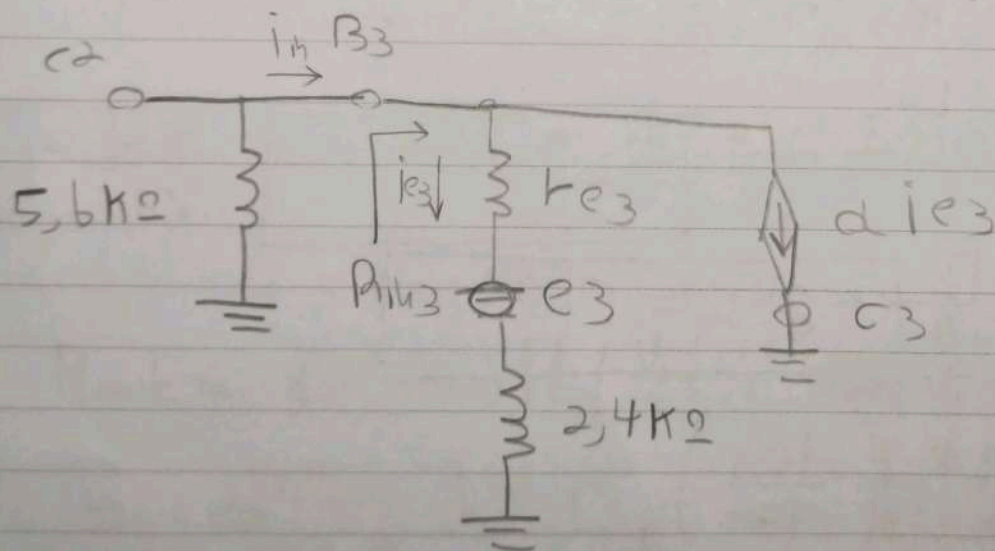 c2
iin B3
5,6KΩ
ie3
re3
α ie3
Rin3
e3
c3
2,4KΩ